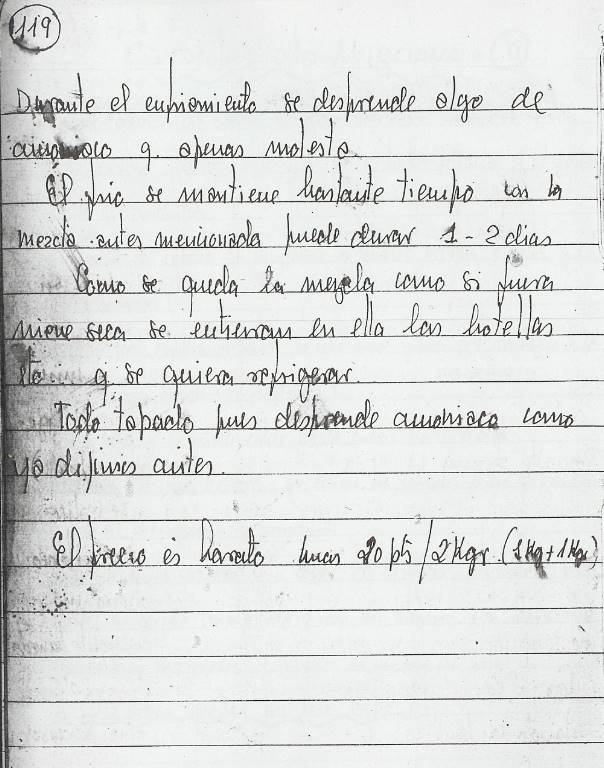 119
Durante el enfriamiento se desprende algo de
amoniaco q. apenas molesta
El frio se mantiene bastante tiempo con la
mezcla antes mencionada puede durar 1-2 dias
Como se queda la mezcla como si fuera
nieve seca se entierran en ella las botellas
etc. q se quiera refrigerar.
Todo tapado pues desprende amoniaco como
ya dijimos antes.
El precio es barato unas 20 pts/2Kgr. (1Kg+1Kg)